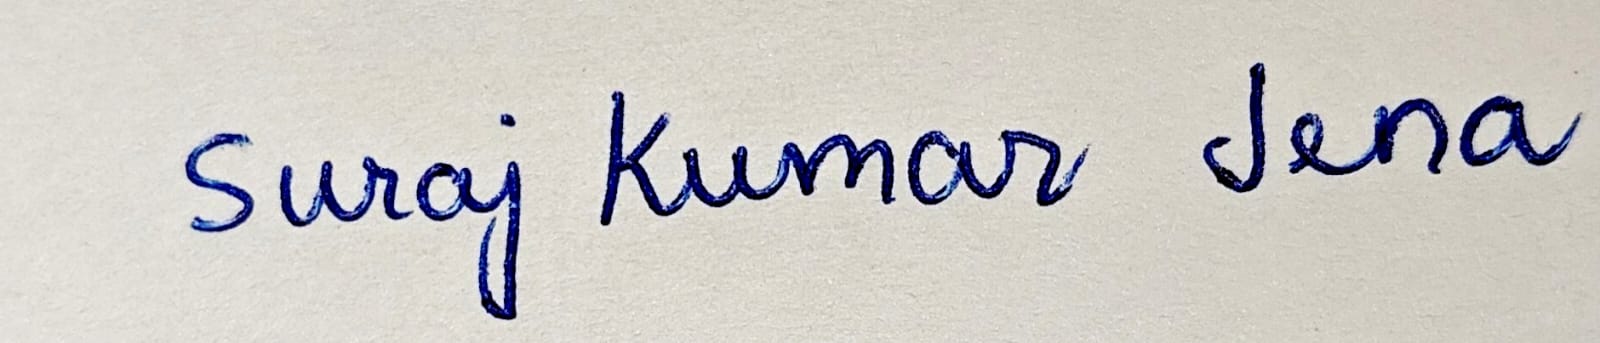 Suraj Kumar Jena